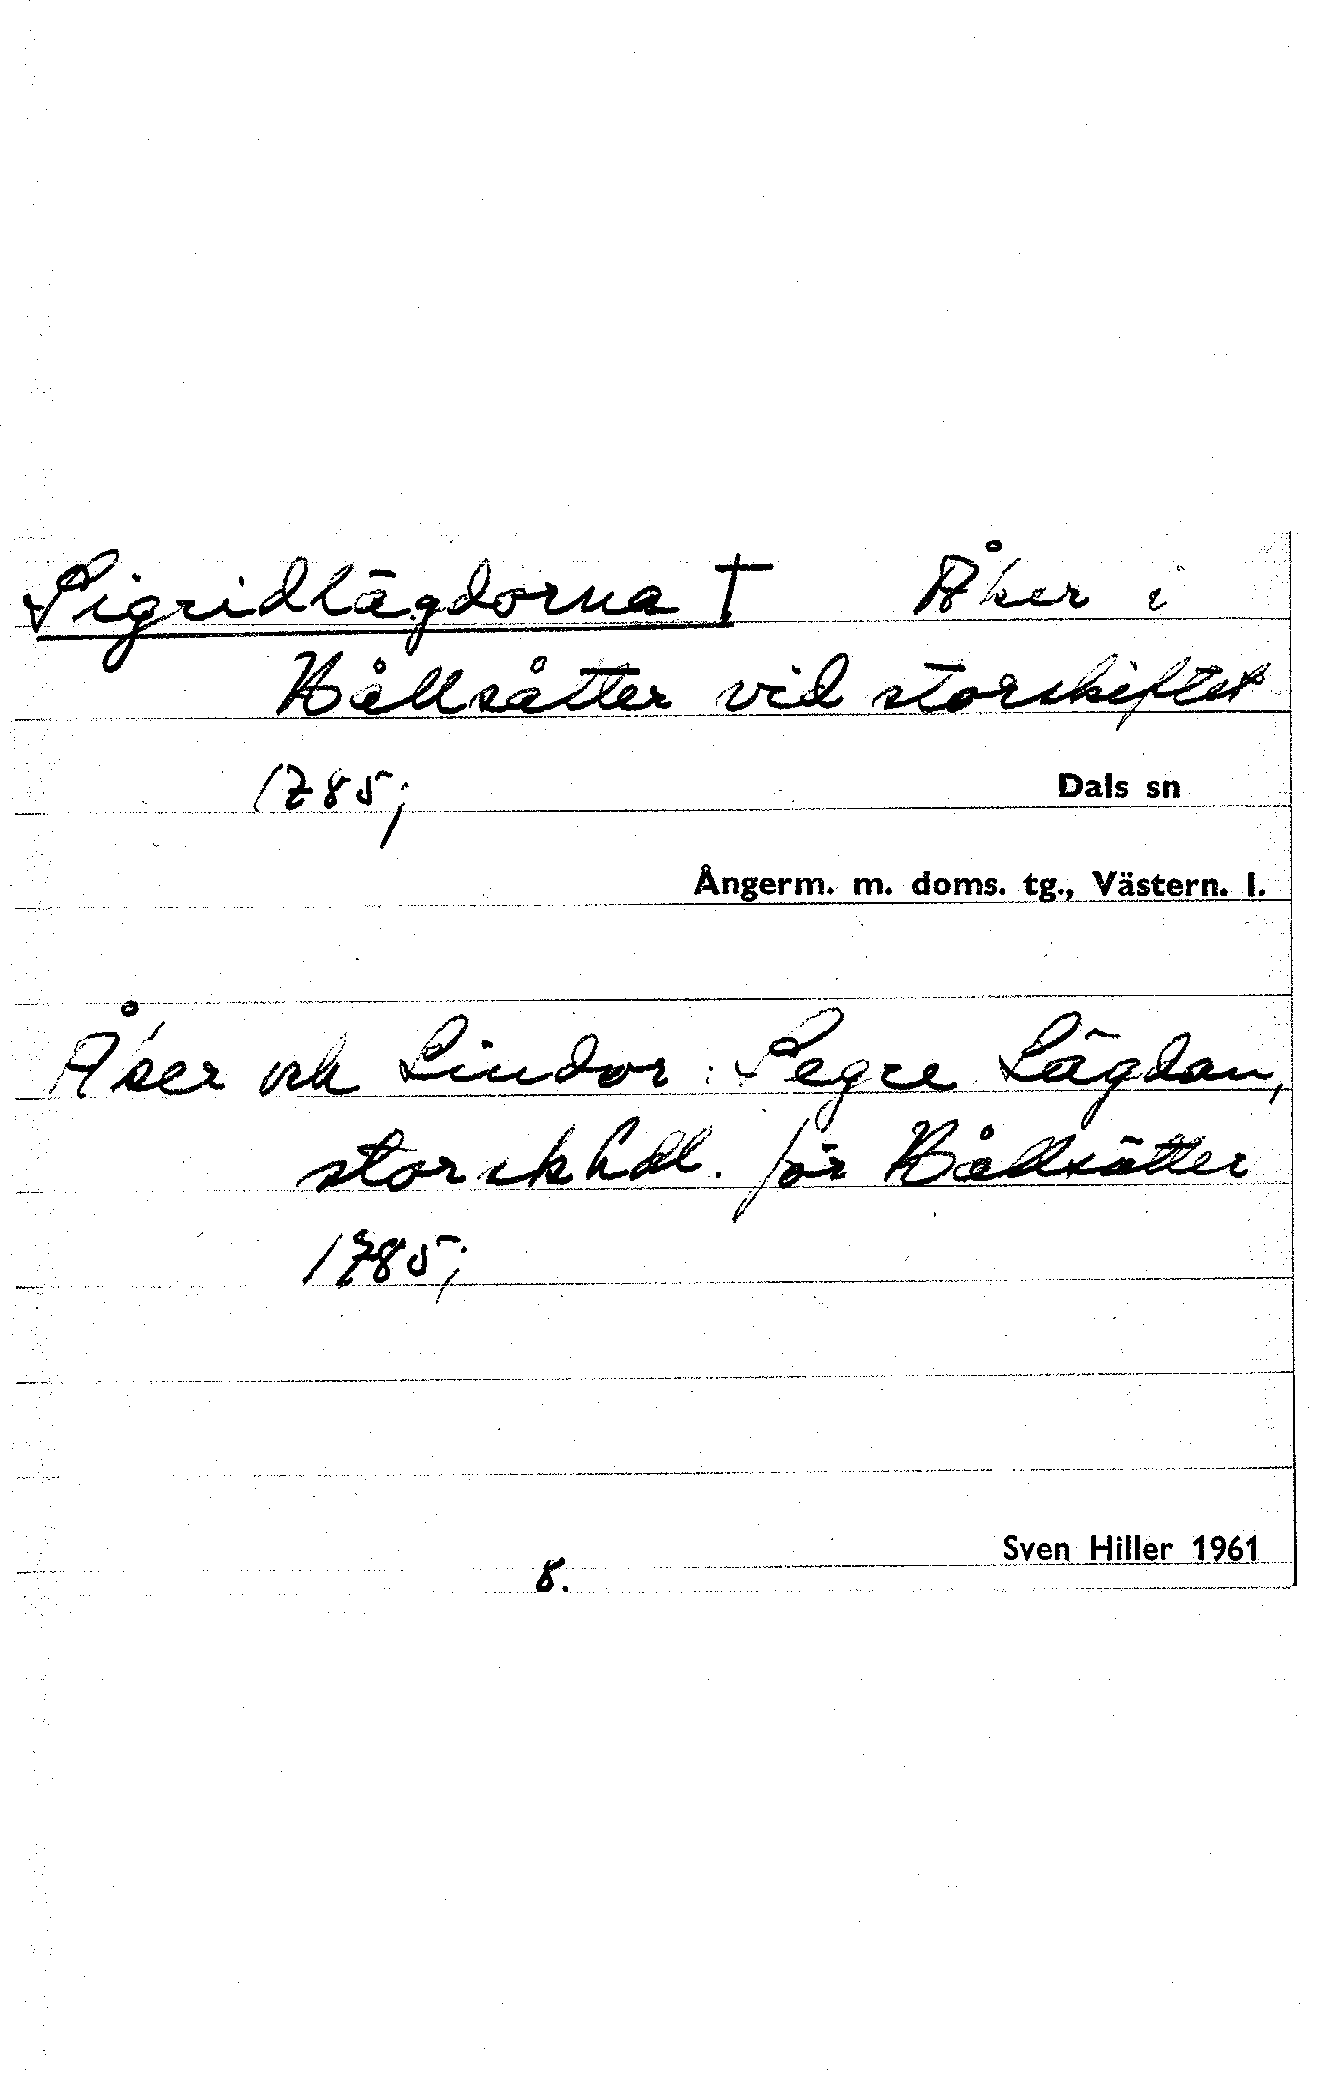 Sigridlägdorna † Åker i
Hållsätter vid storskiftet
1785;
Dals sn
Ångerm. m. doms. tg., Västern. l.
Åker och Lindor: Segre Lägdan,
storskhdl. för Hållsätter
1785;
Sven Hiller 1961
8.